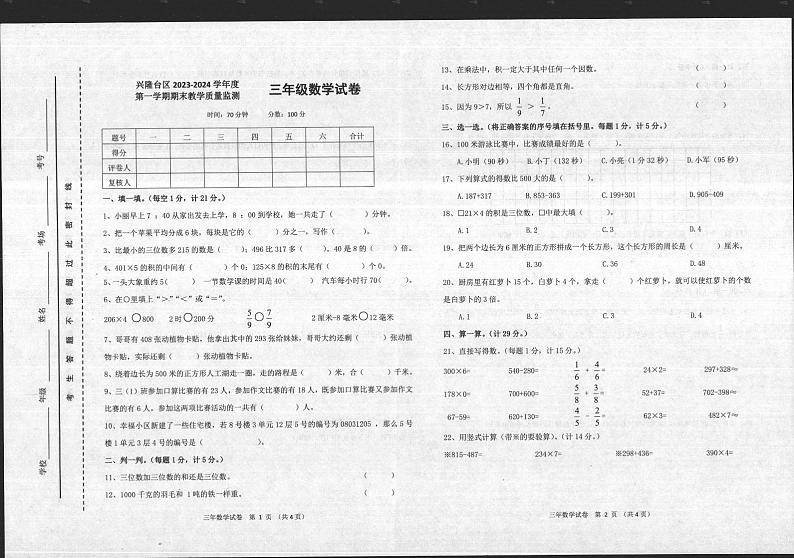 学校
年级
姓名
考场
考号
考 生 答 题 不 得 超 过 此 密 封 线
兴隆台区 2023-2024 学年度
第一学期期末教学质量监测
三年级数学试卷
时间：70 分钟 分数：100 分
题号 一 二 三 四 五 六 合计
得分
评卷人
复核人
一、填一填。（每空 1 分，计 21 分。）
1、小丽早上 7：40 从家出发去上学，8：00 到学校，她一共走了（ ）分钟。
2、把一个苹果平均分成 6 块，每块是它的（ ）分之一，写作（ ）。
3、比最小的三位数多 215 的数是（ ）；496 比 317 多（ ），40 是 8 的（ ）倍。
4、401×5 的积的中间有（ ）个 0；125×8 的积的末尾有（ ）个 0。
5、一头大象重约 5（ ） 一节数学课的时间是 40（ ） 汽车每小时行 70（ ）。
6、在○里填上“>”“<”或“=”。
206×4 ○800 2 时○200 分 5/9 ○ 7/9 2 厘米-8 毫米○12 毫米
7、哥哥有 408 张动植物卡贴，他拿出其中的 293 张给妹妹，哥哥大约还剩（ ）张动植
物卡贴，实际还剩（ ）张动植物卡贴。
8、绕着边长为 500 米的正方形人工湖走一圈，走的路程是（ ）米，合（ ）千米。
9、三（1）班参加口算比赛的有 23 人，参加作文比赛的有 18 人，既参加口算比赛又参加作文
比赛的有 6 人。参加这两项比赛活动的一共有（ ）人。
10、幸福小区新建了一些住宅楼，若 8 号楼 3 单元 12 层 5 号的编号为 08031205 ，那么 5 号
楼 1 单元 3 层 4 号的编号是（ ）。
二、判一判。（每题 1 分，计 5 分。）
11、三位数加三位数的和还是三位数。 （ ）
12、1000 千克的羽毛和 1 吨的铁一样重。 （ ）
三年数学试卷 第 1 页 （共 4 页）
13、在乘法中，积一定大于其中任何一个因数。 （ ）
14、长方形对边相等，四个角都是直角。 （ ）
15、因为 9＞7，所以 1/9 > 1/7。 （ ）
三、选一选。（将正确答案的序号填在括号里。每题 1 分，计 5 分。）
16、100 米游泳比赛中，比赛成绩最好的是（ ）。
A.小明（90 秒） B.小丁（132 秒） C.小亮（1 分 32 秒） D.小军（95 秒）
17、下列算式的得数比 500 大的是（ ）。
A.187+317 B.853-363 C.199+301 D.905-409
18、□21×4 的积是三位数，□中最大填（ ）。
A.1 B.2 C.3 D.4
19、把两个边长为 6 厘米的正方形拼成一个长方形，这个长方形的周长是（ ）厘米。
A.24 B.30 C.36 D.48
20、厨房里有红萝卜 15 个，白萝卜 4 个，拿走（ ）个红萝卜，就可以使红萝卜的个数
是白萝卜的 3 倍。
A.1 B.2 C.3 D.4
四、算一算。（计 29 分。）
21、直接写得数。（每题 1 分，计 15 分。）
300×6= 540-280= 1/6 + 4/6 = 24×2= 297+328≈
178×0= 700+600= 5/8 + 3/8 = 52+37= 702-398≈
67-59= 620+130= 4/5 - 2/5 = 62×3= 482×7≈
22、用竖式计算（带※的要验算）。（计 14 分。）
※815-487= 234×7= ※298+436= 390×4=
三年数学试卷 第 2 页 （共 4 页）